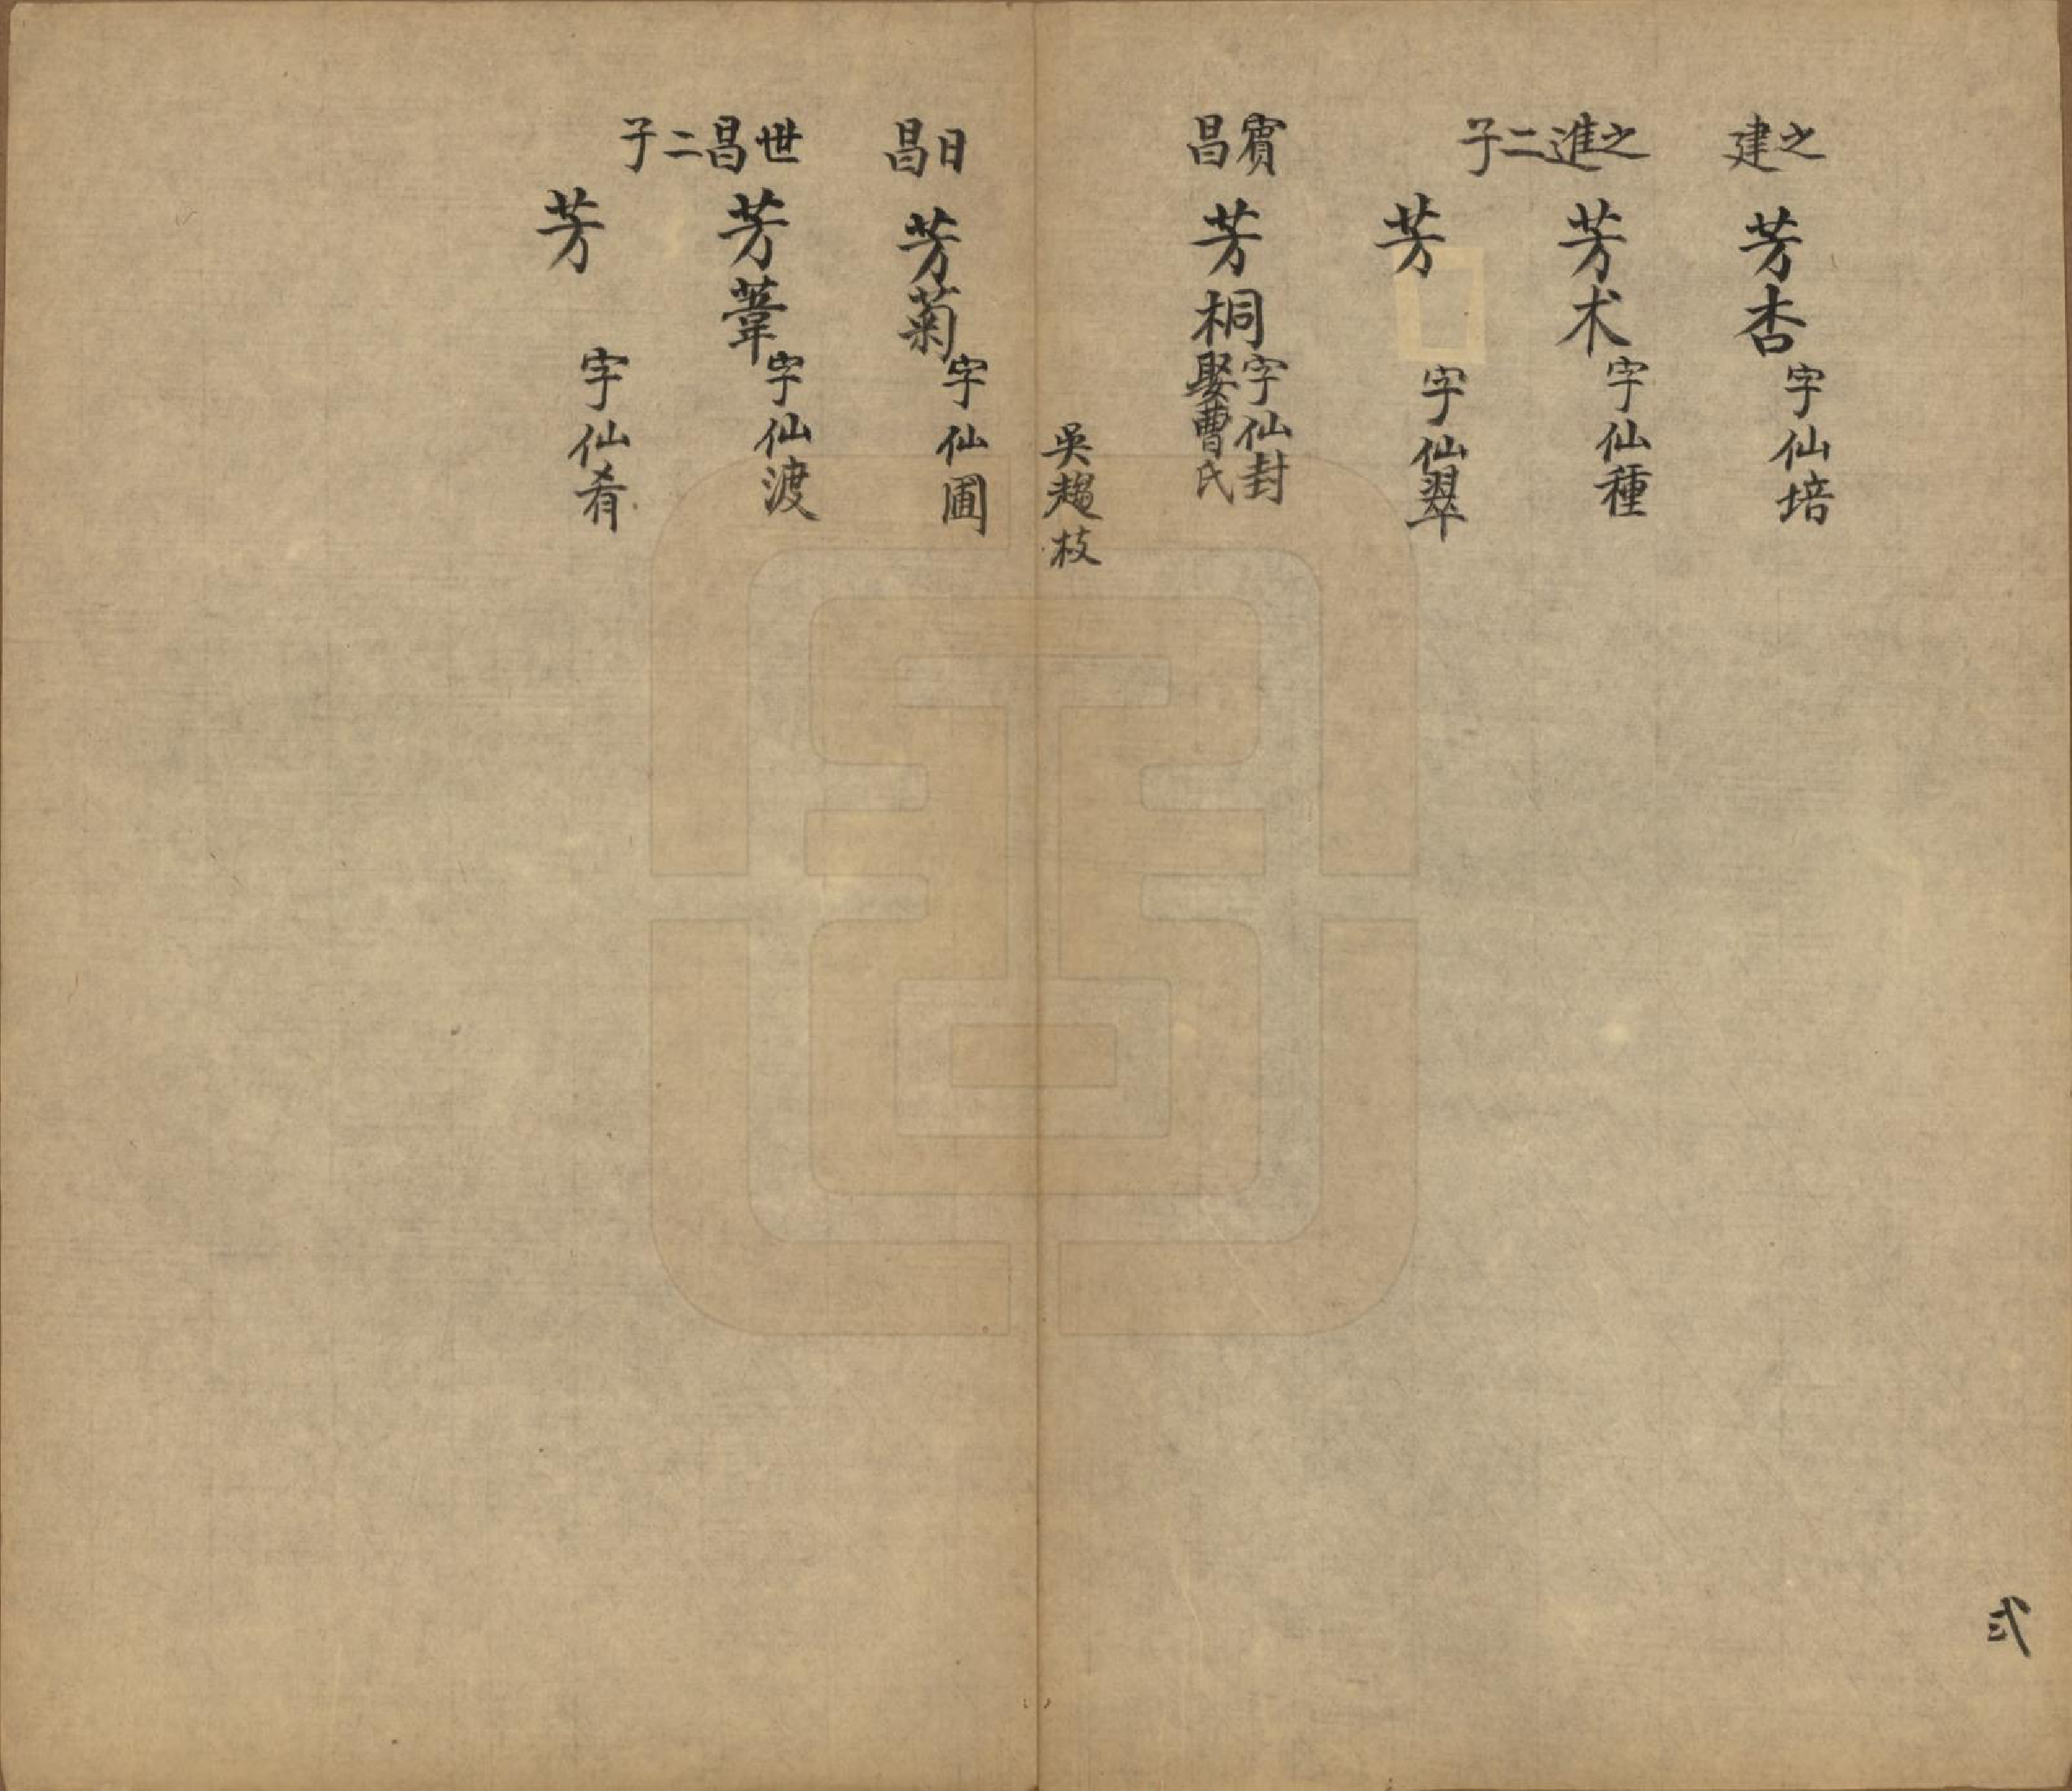 之建
芳杏 字仙培
之進二子
芳术 字仙種
芳 字仙翠
賓昌
芳桐 字仙封 娶曹氏
吳趨枝
日昌
芳菊 字仙圃
世昌二子
芳葦 字仙渡
芳 字仙肴